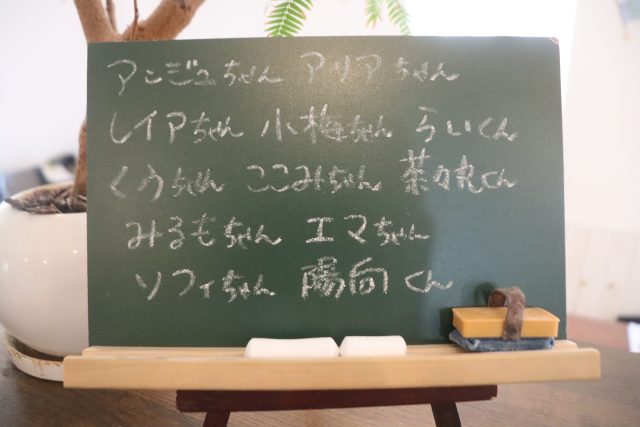 アンジュちゃん アリアちゃん
レイアちゃん 小梅ちゃん らいくん
くうちゃん ここみちゃん 茶々丸くん
みるもちゃん エマちゃん
ソフィちゃん 陽向くん